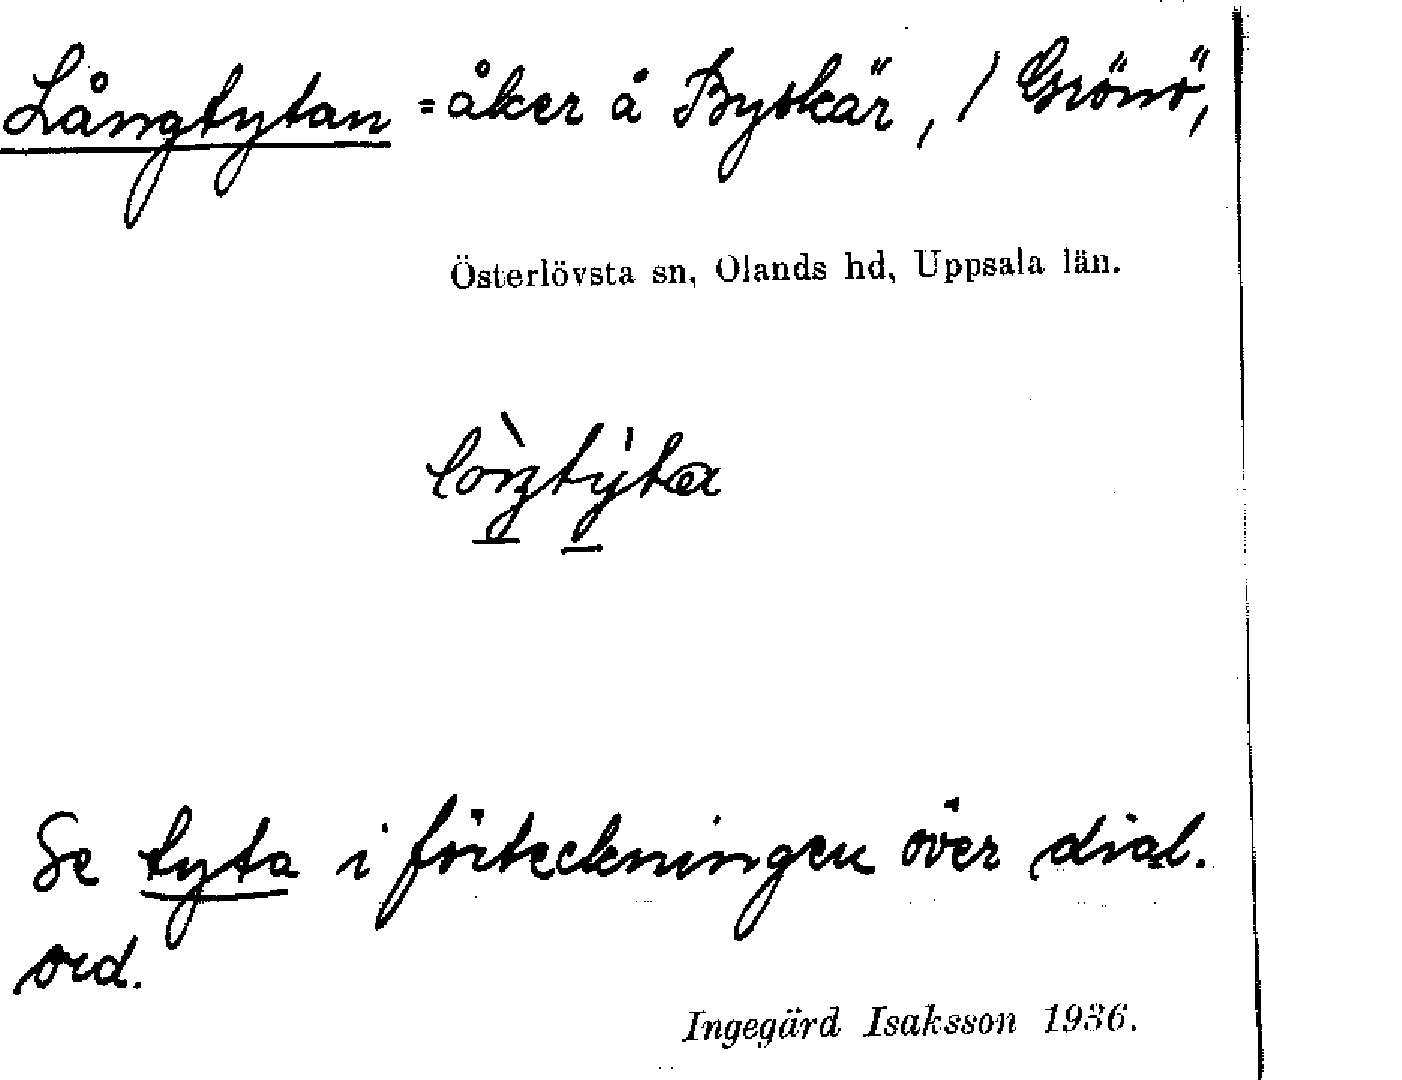 Långtytan = åker å Byskär, / Grönö,
Österlövsta sn, Olands hd, Uppsala län.
Se tyta i förteckningen över dial.
ord.
Ingegärd Isaksson 1936.